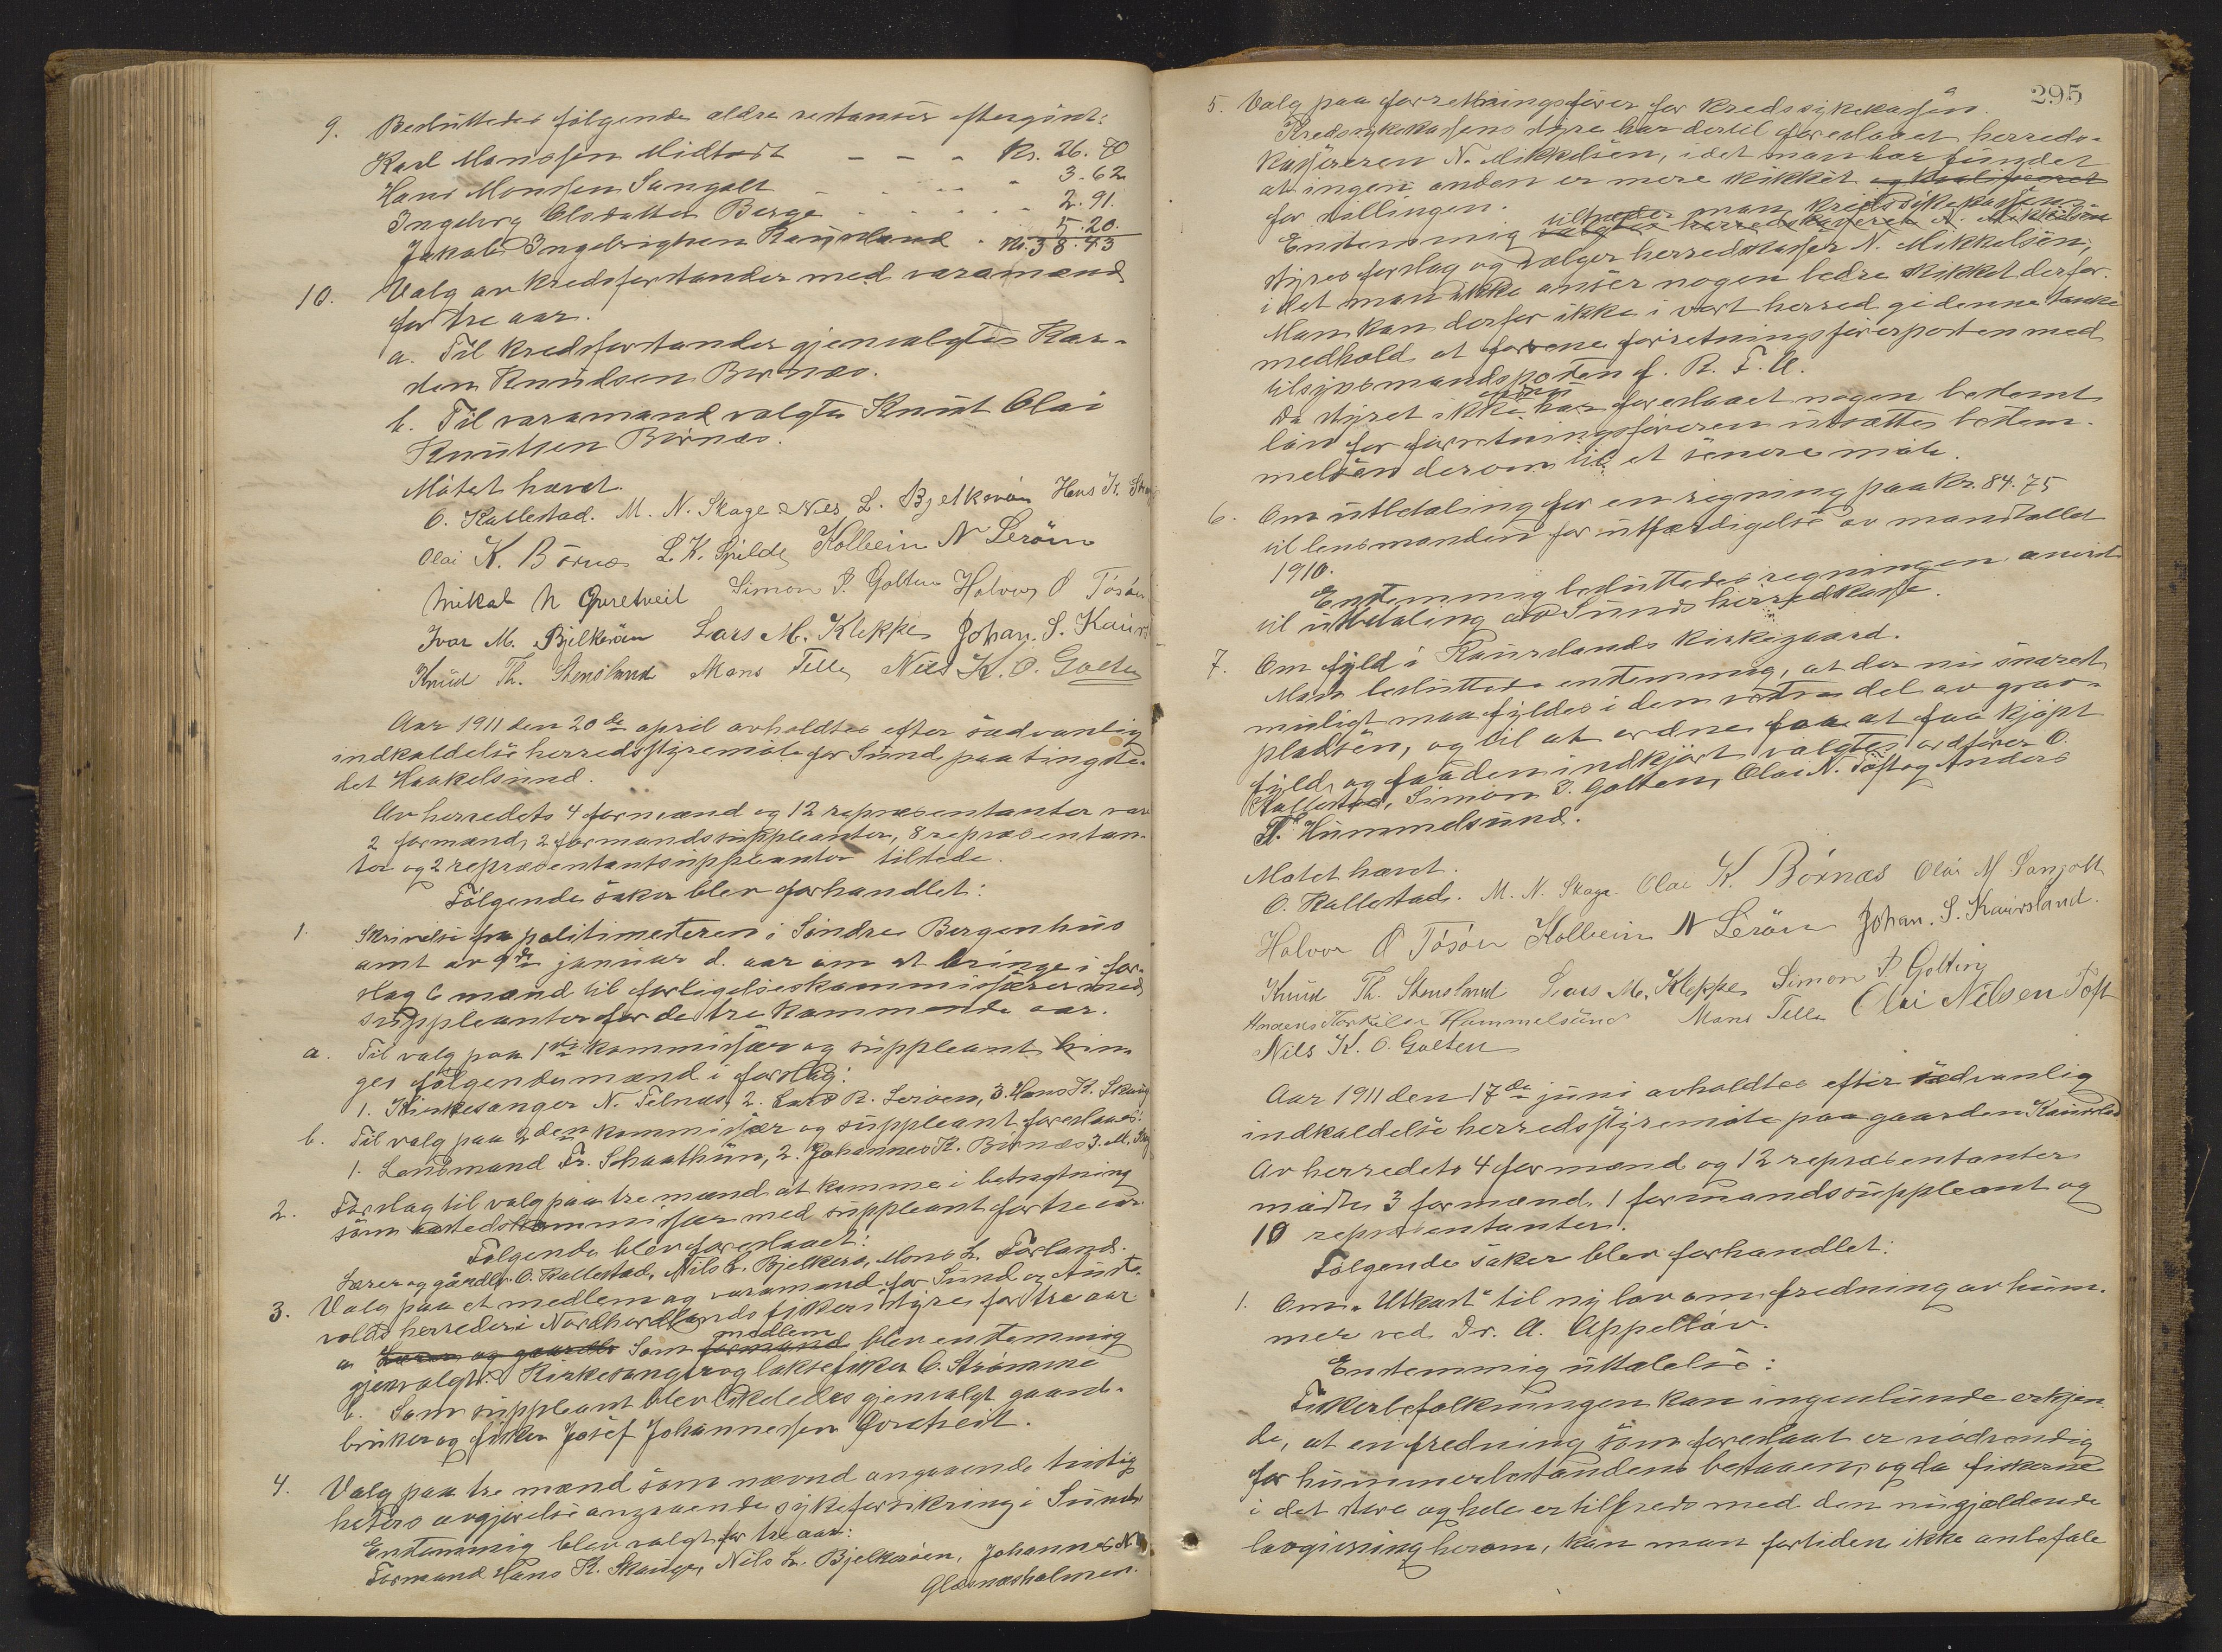 9. Besluttedes følgende ældre restanser eftergivt:
Karl Monssen Midtvedt - - - Kr. 26.70
Hans Monssen Sangolt - - - - 3.62
Ingeborg Olsdatter Berge - - - - - 2.91.
Jakob Ingebrigtsen Kausland - 5.20.
Kr. 38.43
10. Valg av kredsforstander med varamænd
for tre aar.
a. Til kredsforstander gjenvalgtes Kar-
sten Knudsen Børnæs.
b. Til varamand valgtes Knut Olai
Knutsen Børnæs.
Møtet hævet.
O. Kallestad. M. N. Skage Nils L. Bjelkerøen Hans K. Skog
Olai K. Börnæs L. K. Spilde Kolbein N Lerøen
Mikal N Qvretveit Simon P. Golten Halvor O Tösön
Ivar M. Bjelkerøen Lars M. Kleppe Johan. S. Kaurs
Knud Th. Stensland Mons Telle Nils K. O. Golten
Aar 1911 den 20de april avholdtes efter sædvanlig
indkaldelse herredsstyremøte for Sund paa tingste-
det Haakelsund.
Av herredets 4 formænd og 12 repræsentanter var
2 formænd, 2 formandssuppleanter, 8 repræsentan-
ter og 2 repræsentantsuppleanter tilstede.
Følgende saker blev forhandlet:
1. Skrivelse fra politimesteren i Söndre Bergenhus
amt av 9de januar d. aar om at bringe i for-
slag 6 mænd til forligelseskommissærer med
suppleanter for de tre kommende aar.
a. Til valg paa 1ste kommissær og suppleant brin-
ges følgende mænd i forslag:
1. Kirkesanger N. Telnæs, 2. Lars R. Lerøen, 3. Hans K. Skauge
b. Til valg paa 2den kommissær og suppleant foreslaaes:
1. Lensmand Fr. Schaathun, 2. Johannes K. Børnæs 3. M. Skog
2. Forslag til valg paa tre mænd at komme i betragtning
som kommissær med suppleant for tre aar.
Følgende blev foreslaaet:
Lærer og gårdbr. O. Kallestad, Nils L. Bjelkerø, Mons L. Førland.
3. Valg paa et medlem og varamand for Sund og Aust-
volds herreder i Nordhordlands fiskeristyre for tre aar
a Lærer og gaardbr Som formand medlem blev enstemmig
gjenvalgt: Kirkesanger og laksefisker O. Strømme
b. Som suppleant blev likeledes gjenvalgt gaard-
bruker og fisker Josef Johannessen Qvretveit.
4. Valg paa tre mænd som nævnd angaaende tvistig-
heters avgjørelse angaaende sykeforsikring i Sund.
Enstemmig blev valgt for tre aar:
Formand Hans K. Skauge, Nils L. Bjelkerøen, Johannes N.
Glæsnæsholmen.
295
5. Valg paa forretningsfører for kredssykekassen.
Kredssykekassens styre har dertil foreslaaet herreds-
kassereren N. Mikkelsen, idet man har fundet
at ingen anden er mere skikket og kvalificeret
for stillingen.
Enstemmig tiltræder man kredssykekassens
valgtes herredskasserer N. Mikkelsen
styres forslag og vælger herredskasser N. Mikkelsen,
idet man ikke anser nogen bedre skikket derfor.
Man kan derfor ikke i vort herred gi denne tanke
medhold at forene forretningsførerposten med
tilsynsmandsposten f. R. F. A.
Da styret ikke endnu har foreslaaet nogen bestemt
løn for forretningsføreren utsættes bestem-
melsen derom til et senere møte.
6. Om utbetaling for en regning paa Kr. 84.75
til lensmanden for utfærdigelse av mandtallet
1910.
Enstemmig besluttedes regningen anvist
til utbetaling av Sunds herredskasse.
7. Om fyld i Kauslands kirkegaard.
Man besluttede enstemmig, at der nu snarest
muligt maa fyldes i den vestre del av grav-
pladsen, og til at ordne faa at faa kjøpt
fyld, og faa den indkjørt valgtes ordfører O.
Kallestad, Simon P. Golten, Olai N. Töft og Anders
T. Hummelsund.
Møtet hævet.
O. Kallestad. M. N. Skage. Olai K. Börnæs Olai M Sangolt
Halvor O Tösön Kolbein N Lerøen Johan. S. Kausland.
Knud Th. Stensland Lars M. Kleppe Simon P Golten
Anders Torkilsen Hummelsund Mons Telle Olai Nilsen Töft
Nils K. O. Golten
Aar 1911 den 17de juni avholdtes efter sædvanlig
indkaldelse herredsstyremøte paa gaarden Kausland
Av herredets 4 formænd og 12 repræsentanter
mødte 3 formænd, 1 formandssuppleant og
10 repræsentanter.
Følgende saker blev forhandlet:
1. Om "Utkast" til ny lov om fredning av hum-
mer ved Dr. A. Appelløv.
Enstemmig uttalelse:
Fiskerbefolkningen kan ingenlunde erkjen-
de, at en fredning som foreslaat er nødvendig
for hummerbestandens bestaaen, og da fiskerne
i det store og hele er tilfreds med den nugjældende
lovgivning herom, kan man fortiden ikke anbefale